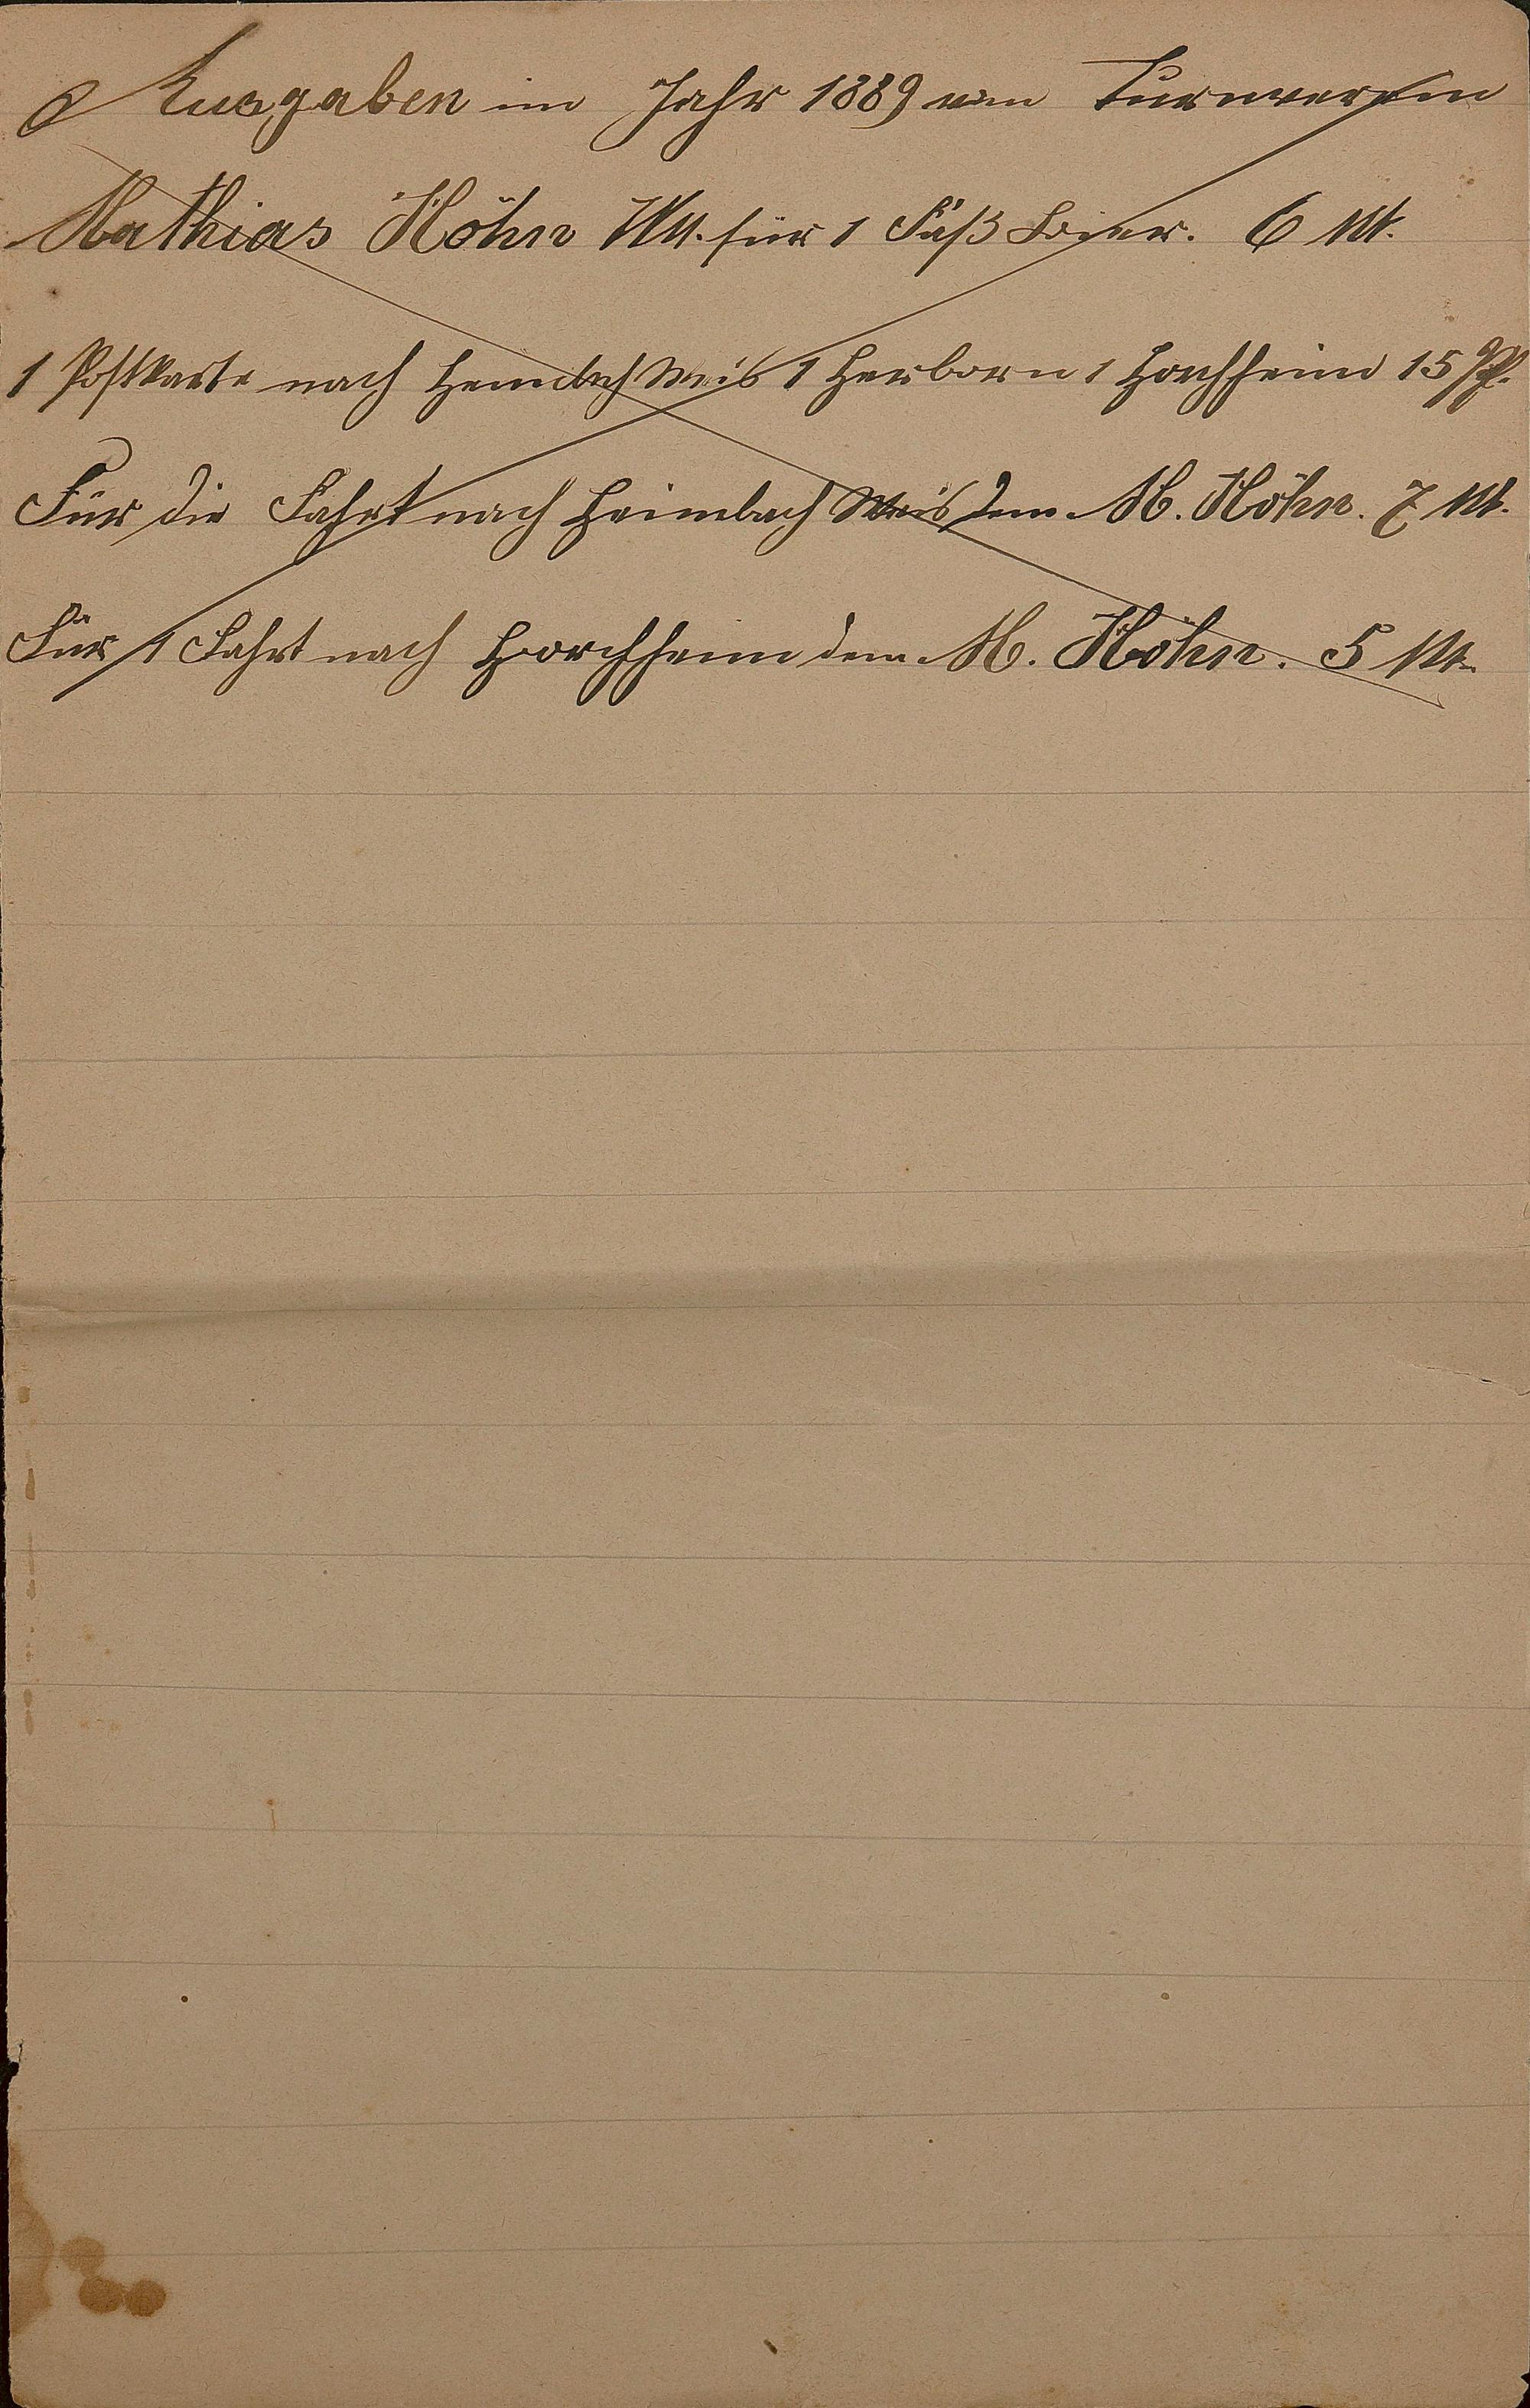 Ausgaben im Jahr 1889 vom Turnverein
Mathias Höhn für 1 Faß Bier. 6 M.
1 Postkarte nach Heimbach Weis 1 Herborn 1 Horchheim 15 Pf.
Für die Fahrt nach Heimbach Weis dem M. Höhn. 7 M.
Für 1 Fahrt nach Horchheim dem M. Höhn. 5 M.